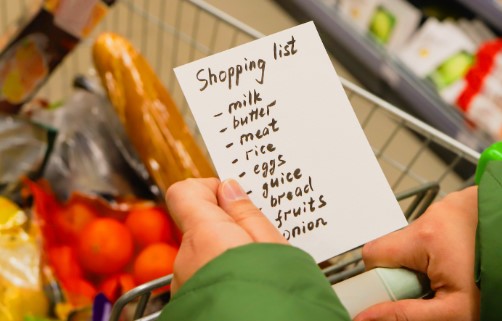 Shopping list
- milk
- butter
- meat
- rice
- eggs
- guice
bread
fruits
onion